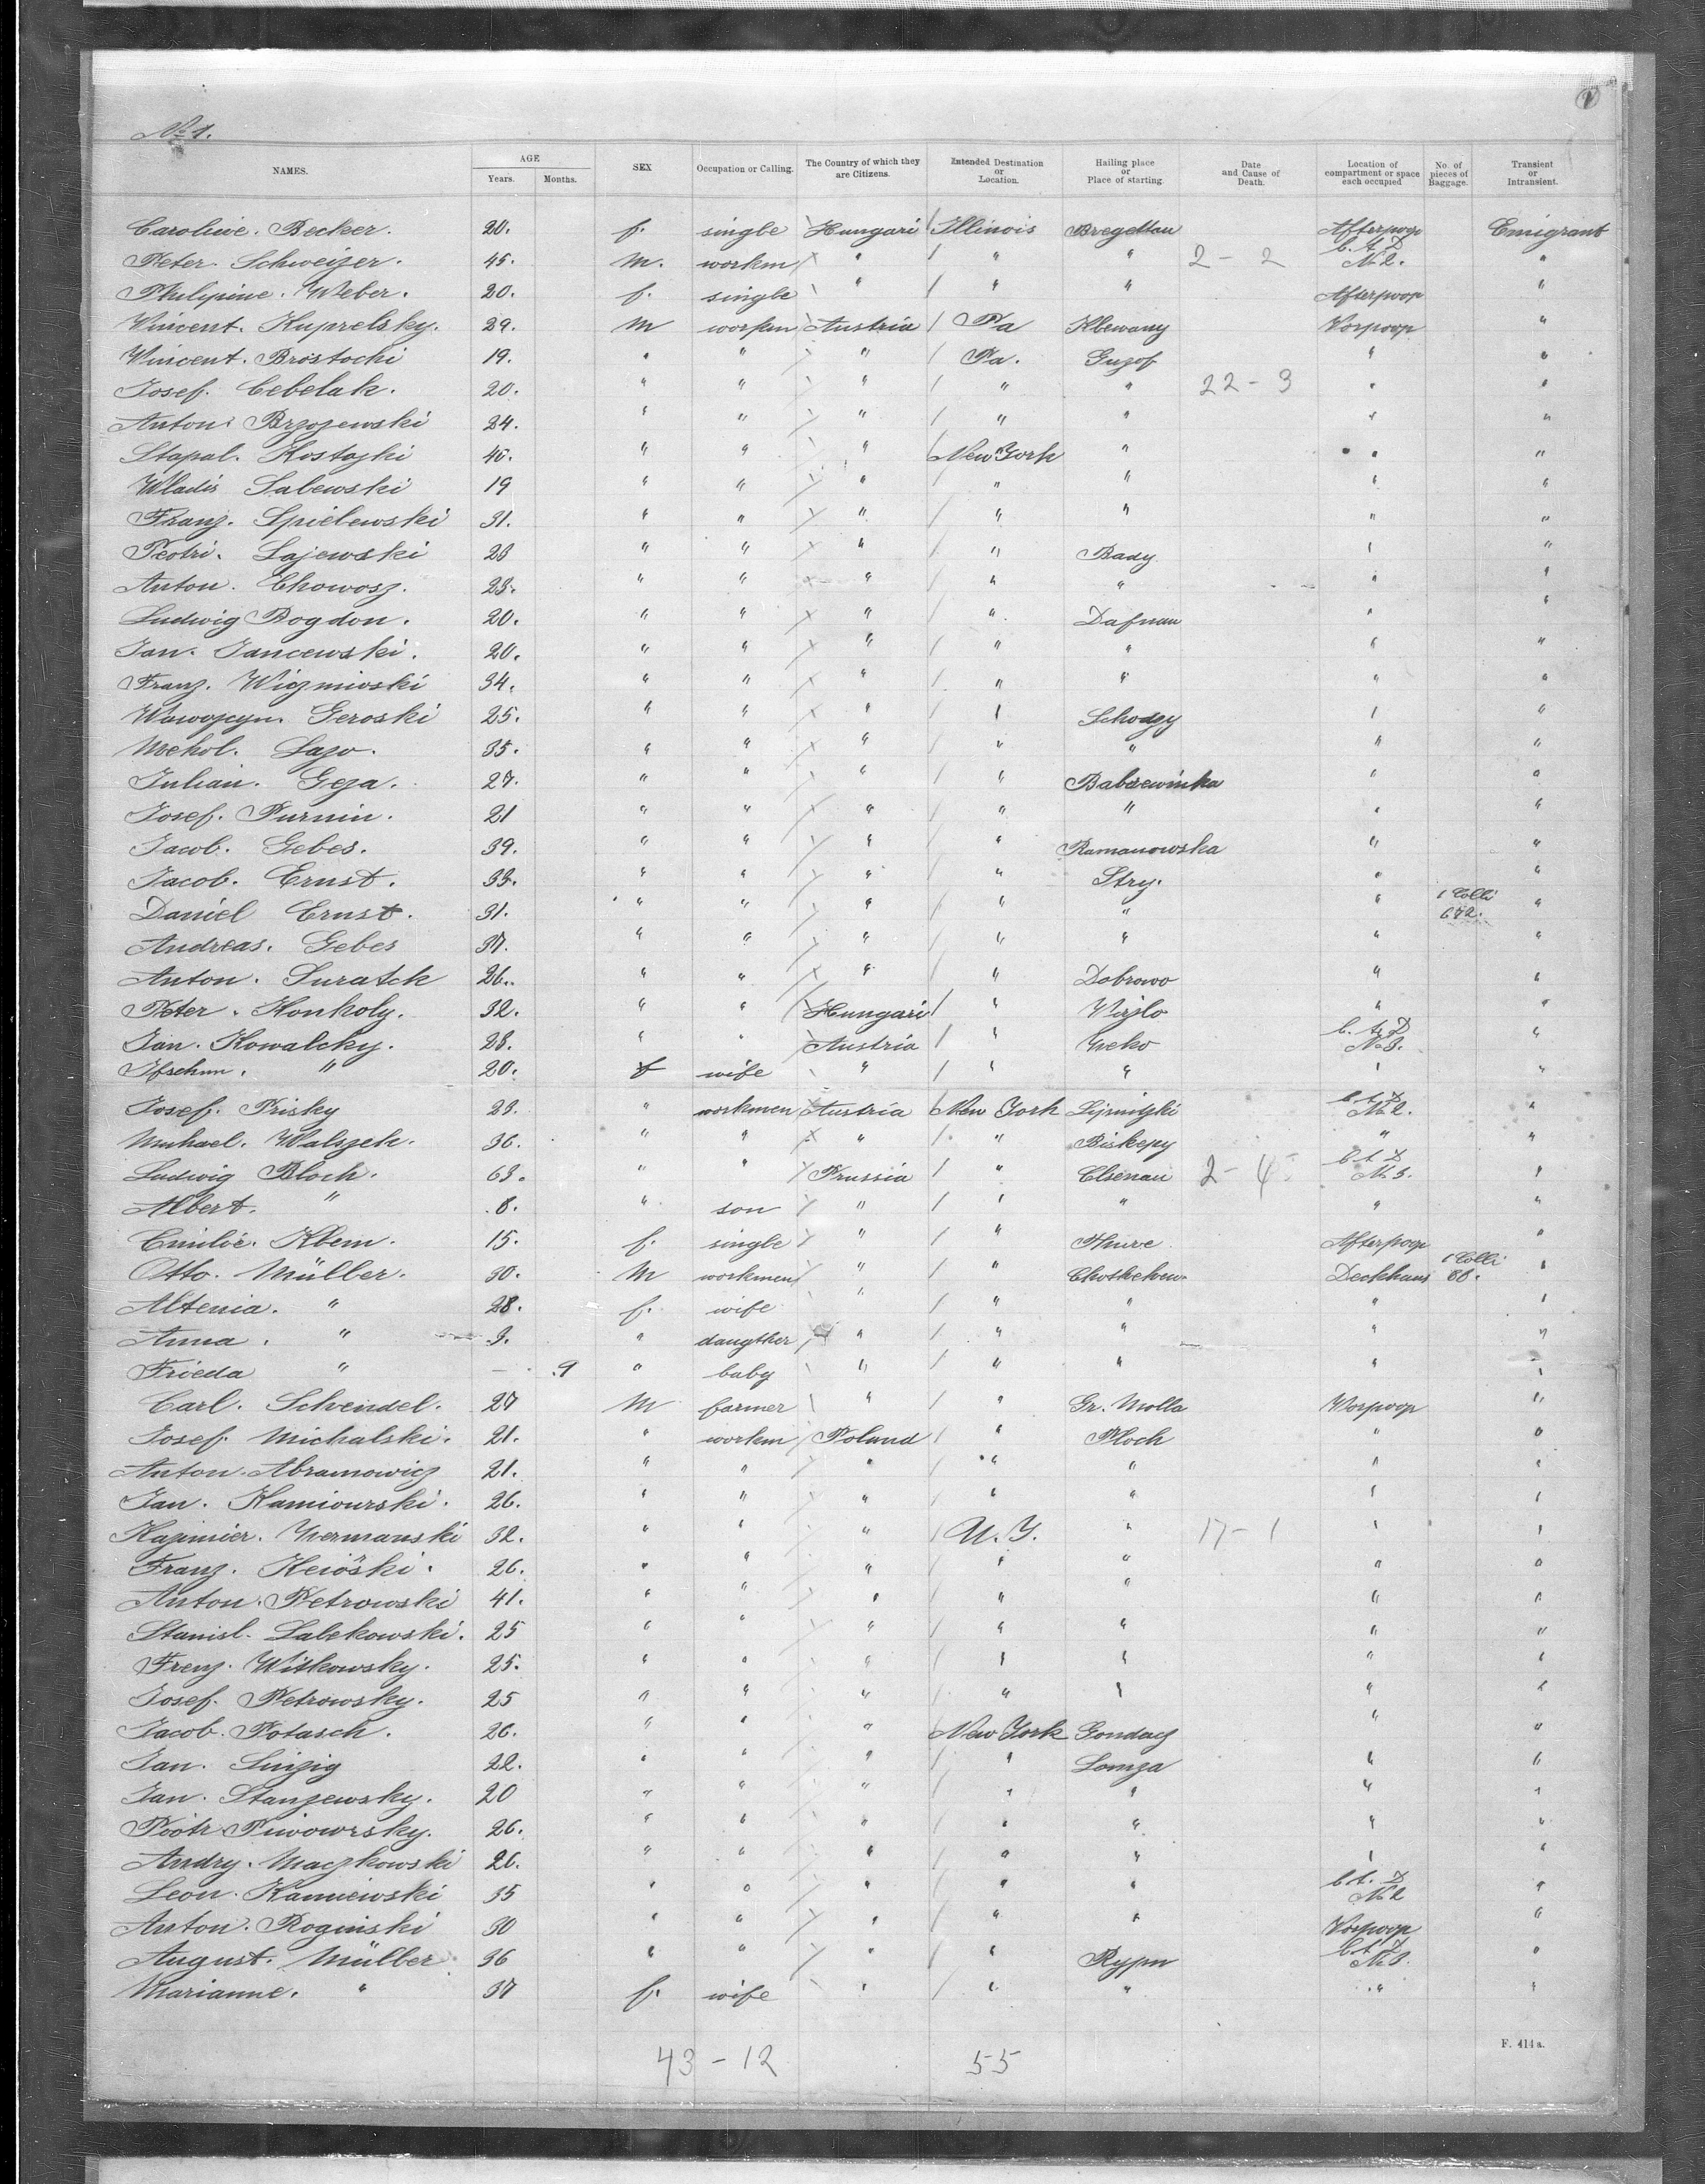 1
No 1.
NAMES. AGE Years. Months. SEX Occupation or Calling. The Country of which they are Citizens. Intended Destination or Location. Hailing place or Place of starting. Date and Cause of Death. Location of compartment or space each occupied No. of pieces of Baggage. Transient or Intransient.
Caroline. Becker. 20. f. single Hungari Illinois Bregettau Afterpoop Emigrant
Peter. Schweizer. 45. M. workm " " " 2 - 2 No 2. "
Philipine. Weber. 20. f. single " " " Afterpoop "
Vincent. Kuprelsky. 29. M workm Austria Pa Klewany Vorpoop "
Vincent. Brostocki 19. " " " Pa. Guzof " "
Josef. Cebelak. 20. " " " " " 22 - 3 " "
Anton. Brzozewski 24. " " " " " " "
Stapal. Kostazki 45. " " " New York " " "
Wladis Salewski 19 " " " " " " "
Franz. Spielewski 31. " " " " " " "
Peotri. Lajewski 23 " " " " Bady " "
Anton. Chowosz. 23. " " " " " " "
Ludwig Bogdon. 20. " " " " Dafnau " "
Jan. Jancewski. 20. " " " " " " "
Franz. Wiczmioski 34. " " " " " " "
Geroski 25. " " " " Schodzy " "
Mechol. Lazo. 35. " " " " " " "
Julian. Geza. 27. " " " " Babzewinka " "
Josef. Purnin. 21 " " " " " " "
Jacob. Gebes. 39. " " " " Ramanowska " "
Jacob. Ernst. 33. " " " " Stry. " "
Daniel Ernst. 31. " " " " " " 1 Colli 672. "
Andreas. Gebes 37. " " " " " " "
Anton. Suratck 26. " " " " Dobrowo " "
Peter. Konkoly. 32. " " Hungari " Wizlo " "
Jan. Kowalcky. 28. " " Austria " Yreko No 3. "
" 20. f wife " " " " "
Josef. Prisky 23. " workmen Austria New York Lipnitzki No 2. "
Michael. Walszek. 36. " " " " Biskepy " "
Ludwig Bloch. 63. " " Prussia " Elsenau 2 - 4 No 3. "
Albert. " 8. " son " " " " "
Emilie. Klein. 15. f. single " " Thure Afterpoop "
Otto. Müller. 30. M workmen " " Deckhaus 1 Colli 68. "
Altenia. " 28. f. wife " " " " "
Anna. " 3. " daugther " " " " "
Frieda " — 9 " baby " " " " "
Carl. Schendel. 27 M farmer " " Gr. Molla Vorpoop "
Josef. Michalski. 21. " workm Poland " Plock " "
Anton. Abramowicz 21. " " " " " " "
Jan. Kamiourski. 26. " " " " " " "
Kazimier. Germanski 32. " " " N. Y. " 17 - 1 " "
Franz. Keioski. 26. " " " " " " "
Anton. Petrowski 41. " " " " " " "
Stanisl. Lalekowski. 25 " " " " " " "
Frenz. Witkowsky. 25. " " " " " " "
Josef. Petrowsky. 25 " " " " " " "
Jacob. Potasch. 26. " " " New York Gondacz " "
Jan. Sinzig 22. " " " " Lomza " "
Jan. Stanzewsky. 20 " " " " " " "
Piotr Piwowrsky. 26. " " " " " " "
Andry. Maczkowski 26. " " " " " " "
Leon. Kamiewski 35 " " " " " No 2 "
Anton. Roginski 30 " " " " " Vorpoop "
August. Müller 36 " " " " Rypin No 3. "
Marianne. " 37 f. wife " " " " "
F. 414a.
43 - 12 55